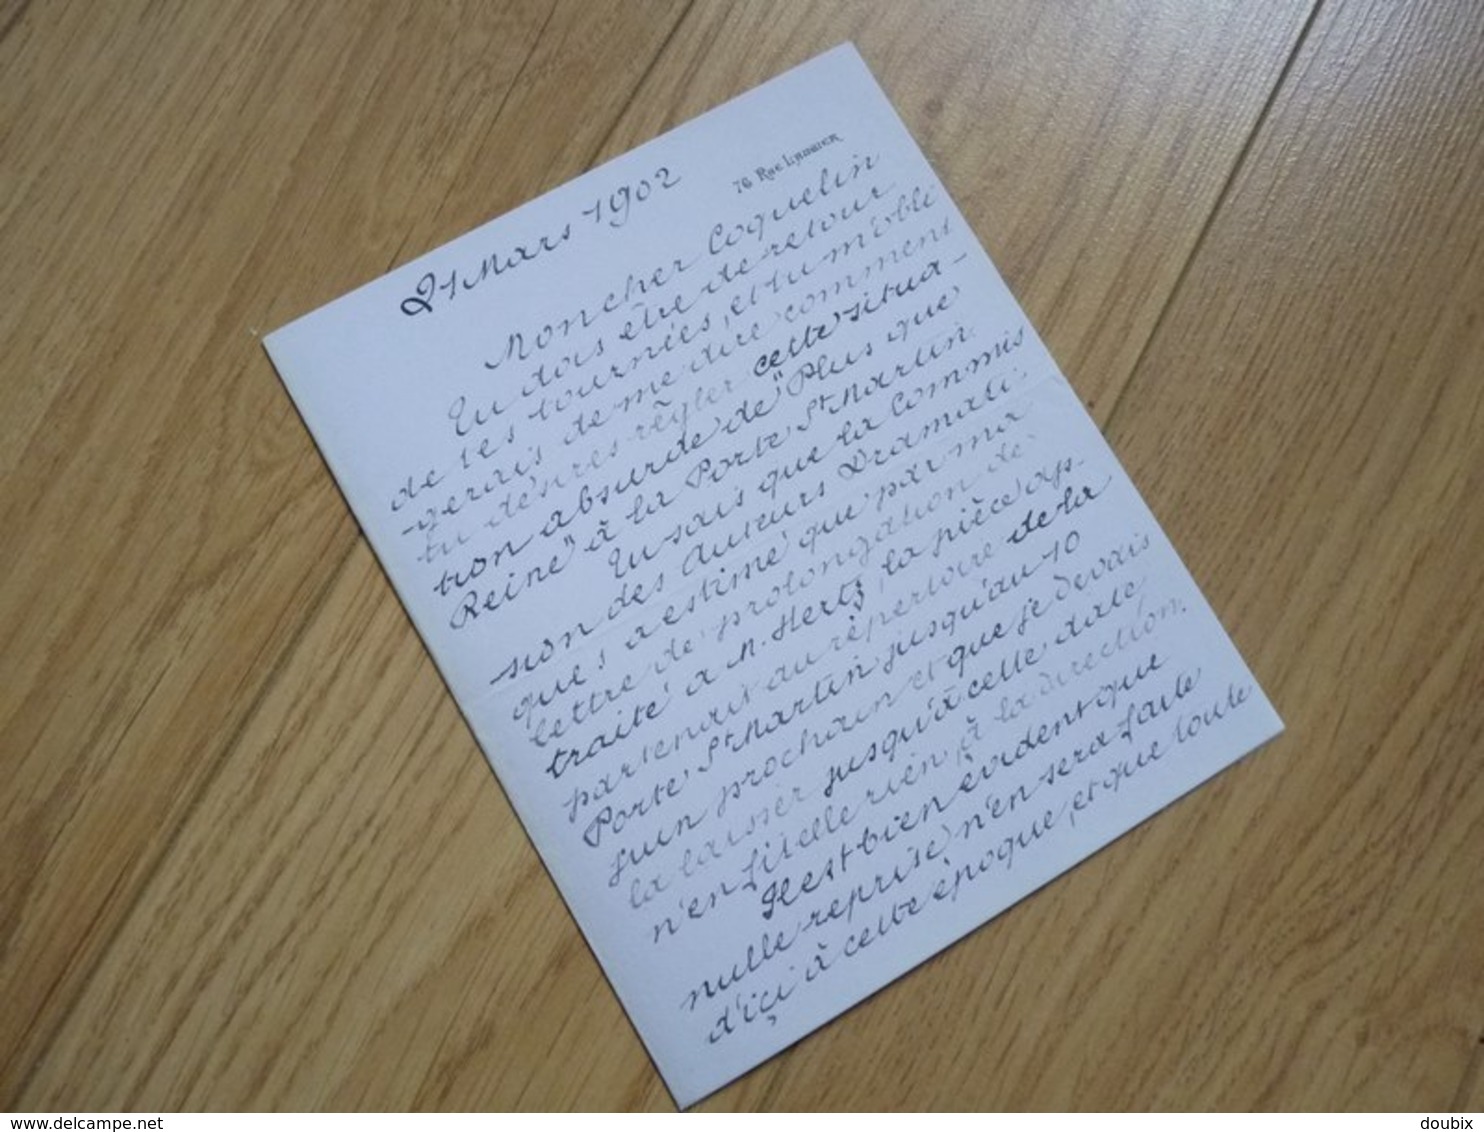 76 Rue Laugier
21 Mars 1902
Mon cher Coquelin
Tu dois être de retour
de tes tournées, et tu m'obli
-gerais de me dire comment
tu désires régler cette situa-
tion absurde de "Plus que
Reine" à la Porte St Martin.
Tu sais que la Commis
sion des Auteurs Dramati
ques a estimé que par ma
lettre de prolongation de
traité à M. Hertz, la pièce ap-
partenait au répertoire de la
Porte St Martin jusqu'au 10
Juin prochain et que je devais
la laisser jusqu'à cette date,
n'en fit elle rien, à la direction.
Il est bien évident que
nulle reprise n'en sera faite
d'içi à cette époque, et que toute
delcampe.net
doubix